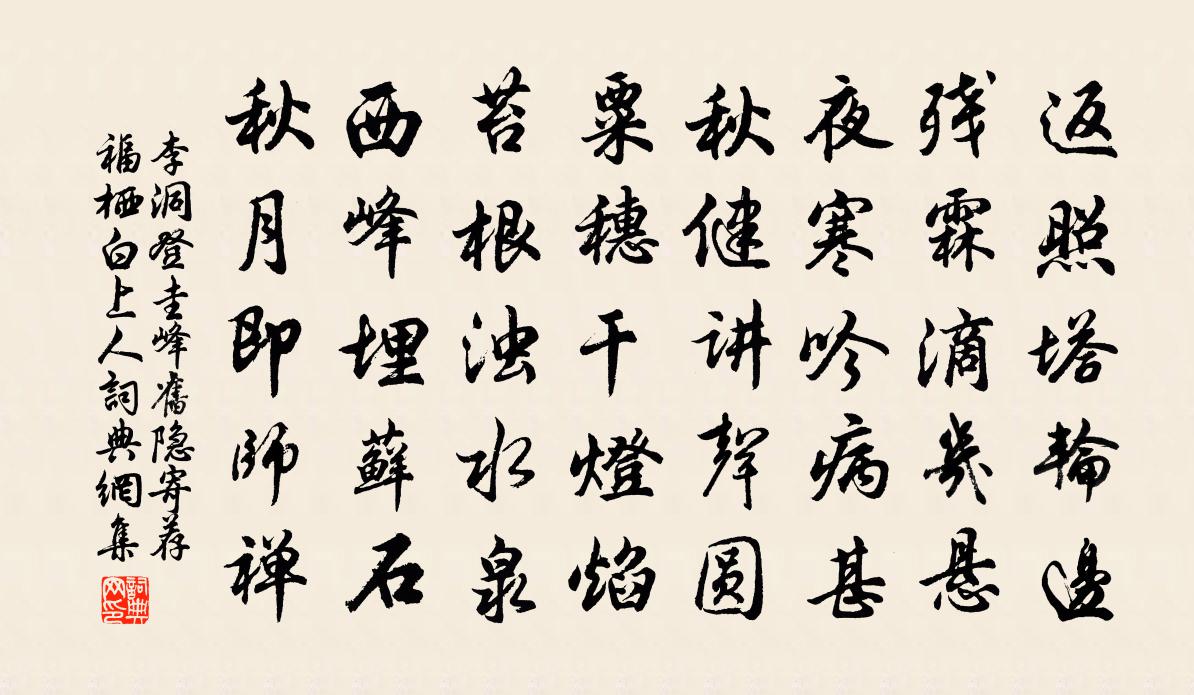 返照塔轮边
残霖滴几悬
夜寒吟病甚
秋健讲声圆
粟穗干灯焰
苔根浊水泉
西峰埋藓石
秋月即师禅
李洞登圭峰旧隐寄荐
福栖白上人词典网集
词典网印